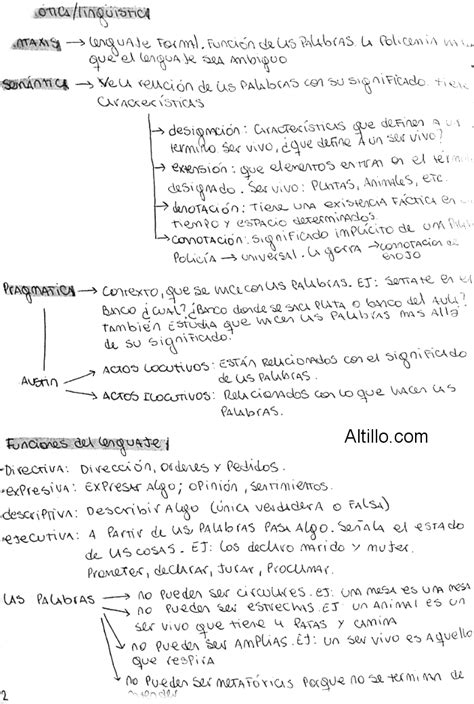 ótica/lingüística
ntaxis → lenguaje formal. Función de las palabras. La policemia
que el lenguaje sea ambiguo
semántica → Ve la relación de las palabras con su significado. Tiene
características
→ designación: características que definen a un
término ser vivo, ¿que define a un ser vivo?
→ extensión: que elementos entran en el
designado. Ser vivo: Plantas, Animales, etc.
→ denotación: Tiene una existencia fáctica en
tiempo y espacio determinados.
→ connotación: significado implícito de un
Policía → universal. La gorra → connotación de
enojo
PRAGMATICA → contexto, que se hace con las palabras. EJ: sentate en el
Banco ¿cual? ¿Banco donde se saca plata o banco del aula?
También estudia que hacen las palabras mas alla
de su significado.
Austin → Actos locutivos: están relacionados con el significado
de las palabras.
→ Actos Ilocutivos: Relacionados con lo que hacen las
Palabras.
Altillo.com
Funciones del lenguaje
-Directiva: Dirección, ordenes y Pedidos.
-expresiva: expresar algo; opinión, sentimientos.
-descriptiva: Describir algo (única verdadera o falsa)
-ejecutiva: A partir de las palabras pasa algo. Señala el estado
de las cosas. EJ: los declaro marido y mujer.
Prometer, declarar, jurar, proclamar.
Las Palabras → no pueden ser circulares. EJ: un mesa es una mesa
→ no pueden ser estrechas. EJ un animal es un
ser vivo que tiene 4 patas y camina
→ no pueden ser AMPLIAS. EJ: un ser vivo es aquello
que respira
→ no pueden ser metafóricas porque no se termina de
2